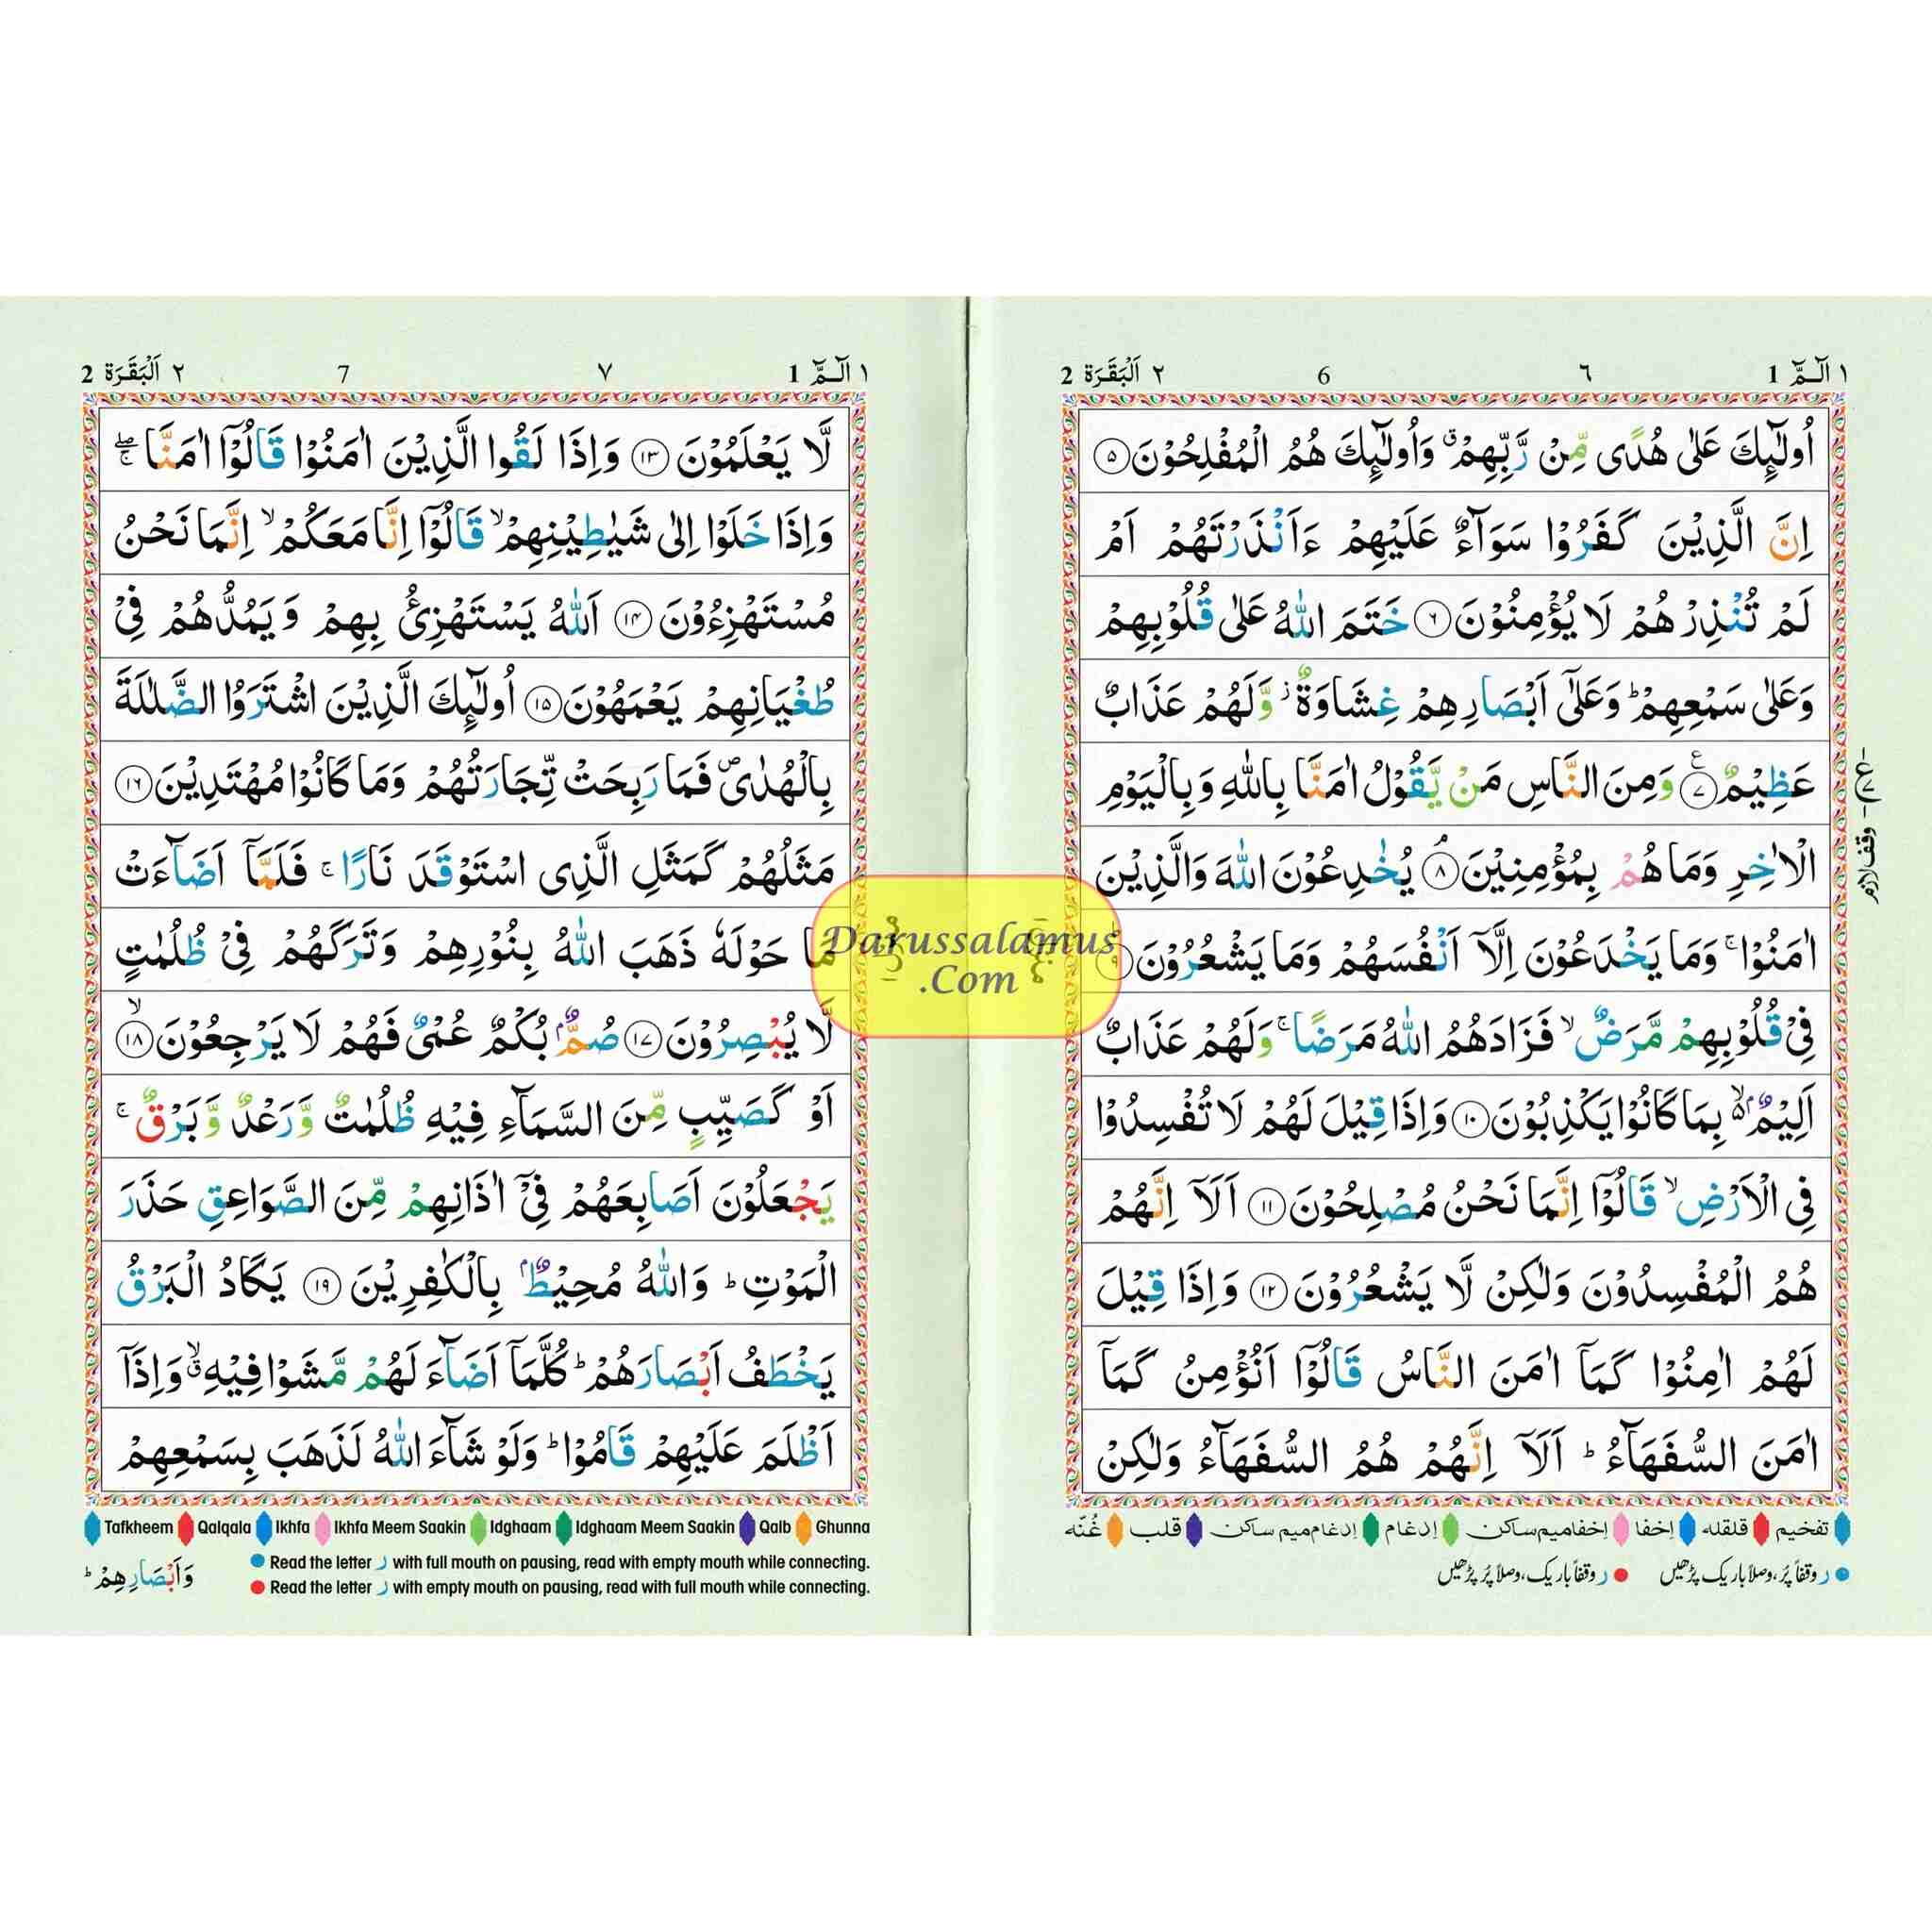 ١ الٓـمّٓ 1 ٦ 6 ٢ اَلْبَقَرَة 2
اُولٰٓئِكَ عَلٰى هُدًى مِّنْ رَّبِّهِمْ ۗ وَاُولٰٓئِكَ هُمُ الْمُفْلِحُوْنَ ۵
اِنَّ الَّذِيْنَ كَفَرُوْا سَوَآءٌ عَلَيْهِمْ ءَاَنْذَرْتَهُمْ اَمْ
لَمْ تُنْذِرْهُمْ لَا يُؤْمِنُوْنَ ۶ خَتَمَ اللّٰهُ عَلٰى قُلُوْبِهِمْ
وَعَلٰى سَمْعِهِمْ ؕ وَعَلٰٓى اَبْصَارِهِمْ غِشَاوَةٌ ؗ وَّلَهُمْ عَذَابٌ
عَظِيْمٌ ۷ ع وَمِنَ النَّاسِ مَنْ يَّقُوْلُ اٰمَنَّا بِاللّٰهِ وَبِالْيَوْمِ
الْاٰخِرِ وَمَا هُمْ بِمُؤْمِنِيْنَ ۘ ۸ يُخٰدِعُوْنَ اللّٰهَ وَالَّذِيْنَ
اٰمَنُوْا ۚ وَمَا يَخْدَعُوْنَ اِلَّآ اَنْفُسَهُمْ وَمَا يَشْعُرُوْنَ ۹
فِيْ قُلُوْبِهِمْ مَّرَضٌ ۙ فَزَادَهُمُ اللّٰهُ مَرَضًا ۚ وَلَهُمْ عَذَابٌ
اَلِيْمٌ ۢ ۙ۬ بِمَا كَانُوْا يَكْذِبُوْنَ ۱۰ وَاِذَا قِيْلَ لَهُمْ لَا تُفْسِدُوْا
فِى الْاَرْضِ ۙ قَالُوْٓا اِنَّمَا نَحْنُ مُصْلِحُوْنَ ۱۱ اَلَآ اِنَّهُمْ
هُمُ الْمُفْسِدُوْنَ وَلٰكِنْ لَّا يَشْعُرُوْنَ ۱۲ وَاِذَا قِيْلَ
لَهُمْ اٰمِنُوْا كَمَآ اٰمَنَ النَّاسُ قَالُوْٓا اَنُؤْمِنُ كَمَآ
اٰمَنَ السُّفَهَآءُ ؕ اَلَآ اِنَّهُمْ هُمُ السُّفَهَآءُ وَلٰكِنْ
وقف لازم
تفخیم قلقلہ اِخفا اِخفامیم ساکن اِدغام اِدغام میم ساکن قلب غُنّه
ر وقفاً پُر، وصلاً باریک پڑھیں ر وقفاً باریک، وصلاً پُر پڑھیں
١ الٓـمّٓ 1 ٧ 7 ٢ اَلْبَقَرَة 2
لَّا يَعْلَمُوْنَ ۱۳ وَاِذَا لَقُوا الَّذِيْنَ اٰمَنُوْا قَالُوْٓا اٰمَنَّا ۖۚ
وَاِذَا خَلَوْا اِلٰى شَيٰطِيْنِهِمْ ۙ قَالُوْٓا اِنَّا مَعَكُمْ ۙ اِنَّمَا نَحْنُ
مُسْتَهْزِءُوْنَ ۱۴ اَللّٰهُ يَسْتَهْزِئُ بِهِمْ وَيَمُدُّهُمْ فِيْ
طُغْيَانِهِمْ يَعْمَهُوْنَ ۱۵ اُولٰٓئِكَ الَّذِيْنَ اشْتَرَوُا الضَّلٰلَةَ
بِالْهُدٰى ۪ فَمَا رَبِحَتْ تِّجَارَتُهُمْ وَمَا كَانُوْا مُهْتَدِيْنَ ۱۶
مَثَلُهُمْ كَمَثَلِ الَّذِى اسْتَوْقَدَ نَارًا ۚ فَلَمَّآ اَضَآءَتْ
مَا حَوْلَهٗ ذَهَبَ اللّٰهُ بِنُوْرِهِمْ وَتَرَكَهُمْ فِيْ ظُلُمٰتٍ
لَّا يُبْصِرُوْنَ ۱۷ صُمٌّ ۢ بُكْمٌ عُمْىٌ فَهُمْ لَا يَرْجِعُوْنَ ۙ ۱۸
اَوْ كَصَيِّبٍ مِّنَ السَّمَآءِ فِيْهِ ظُلُمٰتٌ وَّرَعْدٌ وَّبَرْقٌ ۚ
يَجْعَلُوْنَ اَصَابِعَهُمْ فِيْٓ اٰذَانِهِمْ مِّنَ الصَّوَاعِقِ حَذَرَ
الْمَوْتِ ؕ وَاللّٰهُ مُحِيْطٌ ۢ بِالْكٰفِرِيْنَ ۱۹ يَكَادُ الْبَرْقُ
يَخْطَفُ اَبْصَارَهُمْ ؕ كُلَّمَآ اَضَآءَ لَهُمْ مَّشَوْا فِيْهِ ۙۗ وَاِذَآ
اَظْلَمَ عَلَيْهِمْ قَامُوْا ؕ وَلَوْ شَآءَ اللّٰهُ لَذَهَبَ بِسَمْعِهِمْ
Tafkheem Qalqala Ikhfa Ikhfa Meem Saakin Idghaam Idghaam Meem Saakin Qalb Ghunna
Read the letter ر with full mouth on pausing, read with empty mouth while connecting.
Read the letter ر with empty mouth on pausing, read with full mouth while connecting.
وَاَبْصَارِهِمْ ؕ
Darussalamus
.Com